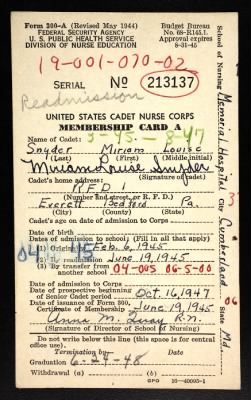 Form 300-A (Revised May 1944)
FEDERAL SECURITY AGENCY
U. S. PUBLIC HEALTH SERVICE
DIVISION OF NURSE EDUCATION
Budget Bureau
No. 68-R145.1.
Approval expires
8-31-45
19-001-070-02
SERIAL No 213137
Readmission
UNITED STATES CADET NURSE CORPS
MEMBERSHIP CARD A
Name of Cadet:
Snyder Miriam Louise
(Last) (First) (Middle initial)
Miriam Louise Snyder
(Signature of cadet)
Cadet's home address:
RFD 1
(Number and street, or R. F. D.)
Everett Bedford Pa.
(City) (County) (State)
Cadet's age on date of admission to Corps
Date of birth
Dates of admission to school (Fill in all that apply)
Feb 6, 1945
June 19, 1945
(3) By transfer from
another school
04-005 06-5-00
Date of admission to Corps
Date of prospective beginning
of Senior Cadet period Oct. 16, 1947
Date of issuance of Form 300,
Certificate of Membership June 19, 1945
Anna M. Quay R.N.
(Signature of Director of School of Nursing)
Do not write below this line (this space is devoted
to central office control)
Termination by Date
Graduation 6-24-48
Withdrawal (a)
GPO 16-40095-1
School of Nursing Memorial Hospital City Cumberland State Md.